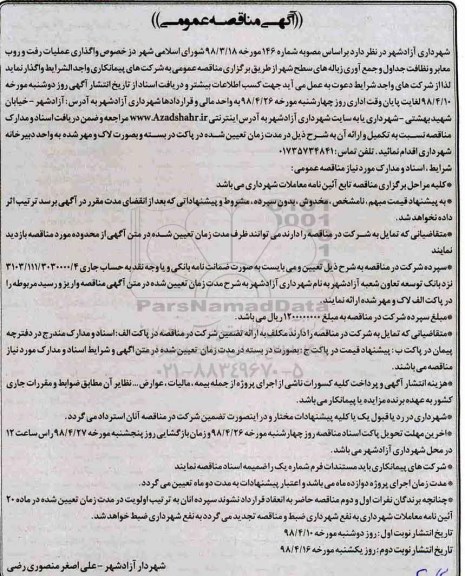 ((آگهی مناقصه عمومی))
شهرداری آزادشهر در نظر دارد بر اساس مصوبه شماره ۱۴۶ مورخه ۹۸/۳/۱۸ شورای اسلامی شهر در خصوص واگذاری عملیات رفت و روب
معابر و نظافت جداول و جمع آوری زباله های سطح شهر از طریق برگزاری مناقصه عمومی به شرکت های پیمانکاری واجد الشرایط واگذار نماید
لذا از شرکت های واجد شرایط دعوت به عمل می آید جهت کسب اطلاعات بیشتر و دریافت اسناد از تاریخ انتشار آگهی روز دوشنبه مورخه
۹۸/۴/۱۰ لغایت پایان وقت اداری روز چهارشنبه مورخه ۹۸/۴/۲۶ به واحد مالی و قراردادها شهرداری آزادشهر به آدرس : آزادشهر - خیابان
شهید بهشتی - شهرداری یا به سایت شهرداری آزادشهر به آدرس اینترنتی www.Azadshahr.ir مراجعه و ضمن دریافت اسناد و مدارک
مناقصه نسبت به تکمیل و ارائه آن به شرح ذیل در مدت زمان تعیین شده در پاکت در بسته و بصورت لاک و مهر شده به واحد دبیرخانه
شهرداری اقدام نمائید . تلفن تماس : ۰۱۷۳۵۷۳۴۸۴۱
شرایط ، اسناد و مدارک مورد نیاز مناقصه عمومی:
*کلیه مراحل برگزاری مناقصه تابع آئین نامه معاملات شهرداری می باشد
* به پیشنهاد قیمت مبهم ، نامشخص ، مخدوش ، بدون سپرده ، مشروط و پیشنهاداتی که بعد از انقضای مدت مقرر در آگهی برسد ترتیب اثر
داده نخواهد شد.
*متقاضیانی که تمایل به شرکت در مناقصه را دارند می توانند ظرف مدت زمان تعیین شده در متن آگهی از محدوده مورد مناقصه بازدید
نمایند
*سپرده شرکت در مناقصه به شرح ذیل تعیین و می بایست به صورت ضمانت نامه بانکی و یا وجه نقد به حساب جاری ۳۱۰۳/۱۱۱/۳۰۳۰۰۰۰/۴
نزد بانک توسعه تعاون شعبه آزادشهر به نام شهرداری آزادشهر به شرح مدت زمان تعیین شده در متن آگهی مناقصه واریز و رسید مربوطه را
در پاکت الف لاک و مهر شده ارائه نمایند.
*مبلغ سپرده شرکت در مناقصه به مبلغ ۱۲۰۰۰۰۰۰۰۰ ریال می باشد.
*متقاضیانی که تمایل به شرکت در مناقصه را دارند مکلف به ارائه تضمین شرکت در مناقصه در پاکت الف : اسناد و مدارک مندرج در دفترچه
پیمان در پاکت ب : پیشنهاد قیمت در پاکت ج : بصورت در بسته در مدت زمان تعیین شده در متن آگهی و شرایط اسناد و مدارک مورد نیاز
مناقصه می باشند.
*هزینه انتشار آگهی و پرداخت کلیه کسورات ناشی از اجرای پروژه از جمله بیمه ، مالیات ، عوارض ... نظایر آن مطابق ضوابط و مقررات جاری
کشور به عهده برنده مزایده یا پیمانکار می باشد.
*شهرداری در رد یا قبول یک یا کلیه پیشنهادات مختار و در اینصورت تضمین شرکت در مناقصه آنان استرداد می گردد.
*آخرین مهلت تحویل پاکت اسناد مناقصه روز چهارشنبه مورخه ۹۸/۴/۲۶ و زمان بازگشایی روز پنجشنبه مورخه ۹۸/۴/۲۷ راس ساعت ۱۲
در محل شهرداری آزادشهر می باشد.
*شرکت های پیمانکاری باید مستندات فرم شماره یک را ضمیمه اسناد مناقصه نمایند
*مدت زمان اجرای پروژه دوازده ماه می باشد و اعتبار پیشنهادات به مدت دو ماه تعیین می گردد.
*چنانچه برندگان نفرات اول و دوم مناقصه حاضر به انعقاد قرارداد نشوند سپرده آنان به ترتیب اولویت در مدت زمان تعیین شده در ماده ۲۰
آئین نامه معاملات شهرداری به نفع شهرداری ضبط و مناقصه تجدید می گردد به نفع شهرداری ضبط خواهد شد.
تاریخ انتشار نوبت اول : روز دوشنبه مورخه ۹۸/۴/۱۰
تاریخ انتشار نوبت دوم : روز یکشنبه مورخه ۹۸/۴/۱۶
شهردار آزادشهر - علی اصغر منصوری رضی
ParsNamadData
۰۲۱-۸۸۳۴۹۶۷۰-۵